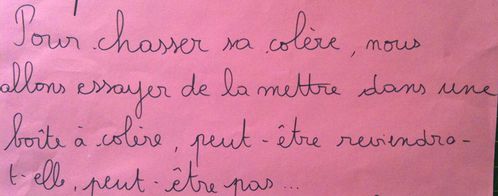 Pour chasser sa colère, nous
allons essayer de la mettre dans une
boîte à colère, peut-être reviendra-
t-elle, peut-être pas...